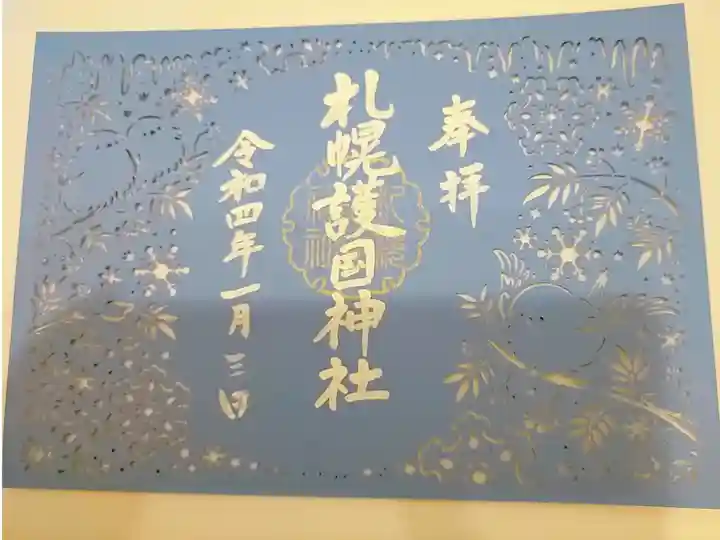 奉拝
札幌護国神社
令和四年一月三日